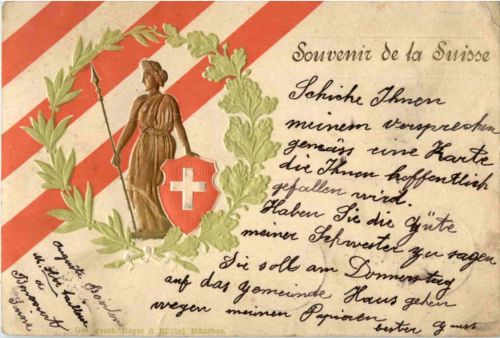 Souvenir de la Suisse
Schicke Ihnen
meinem versprechen
gemäss eine Karte
die Ihnen hoffentlich
gefallen wird.
Haben Sie die Güte
meiner Schwester zu sagen
Sie soll am Donnerstag
auf das Gemeinde Haus gehen
wegen meinen Papieren
bester Gruss
Auguste
a
Ges. gesch. & München.